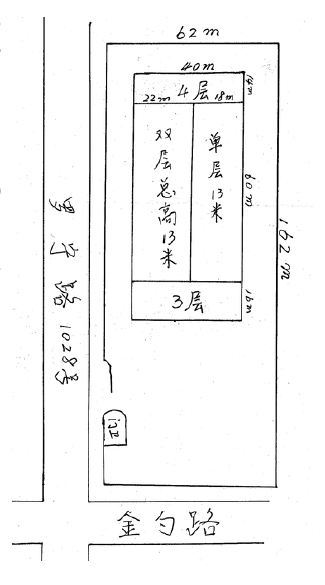 62m
40m
4层
14m
22m
18m
双层总高13米
单层13米
60m
162m
3层
16m
1028号
门卫
金勺路